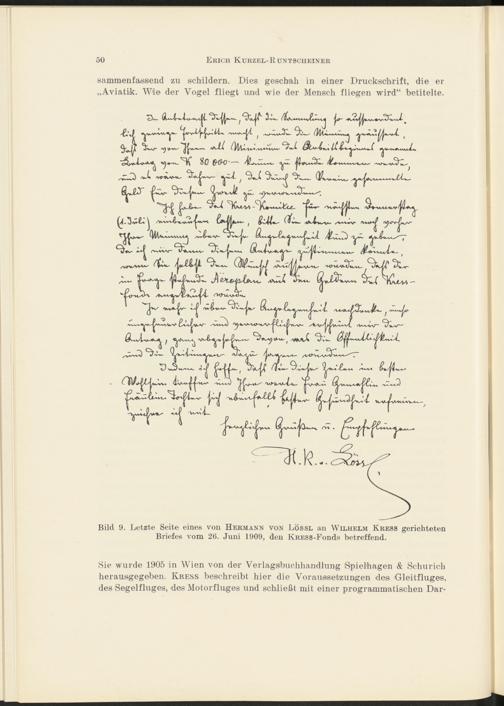 50
ERICH KURZEL-RUNTSCHEINER
sammenfassend zu schildern. Dies geschah in einer Druckschrift, die er
„Aviatik. Wie der Vogel fliegt und wie der Mensch fliegen wird“ betitelte.
In Anbetracht dessen, daß die Sammlung so ausserordent-
lich geringe Fortschritte macht, wurde die Meinung geäussert,
daß der von Ihnen als Minimum des Arbeitsbeginnes genannte
Betrag von K 80 000 — kaum zu stande kommen werde,
und es wäre daher gut, das durch den Verein gesammelte
Geld für diesen Zweck zu verwenden.
Ich habe das Kress-Komitee für nächsten Donnerstag
(1. Juli) einberufen lassen, bitte Sie aber mir noch vorher
Ihre Meinung über diese Angelegenheit kund zu geben,
da ich nur dann diesem Antrage zustimmen könnte,
wenn Sie selbst den Wunsch äussern würden, daß der
in Frage stehende Aeroplan aus den Geldern des Kress-
fonds angekauft würde.
Je mehr ich über diese Angelegenheit nachdenke, umso
ungeheuerlicher und verwerflicher erscheint mir der
Antrag, ganz abgesehen davon, was die Öffentlichkeit
und die Zeitungen dazu sagen würden.
Indem ich hoffe, daß Sie diese Zeilen im besten
Wohlsein treffen und Ihre werte Frau Gemahlin und
Fräulein Tochter sich ebenfalls bester Gesundheit erfreuen,
zeichne ich mit
herzlichen Grüßen u. Empfehlungen
H. R. v. Lössl
Bild 9. Letzte Seite eines von HERMANN VON LÖSSL an WILHELM KRESS gerichteten
Briefes vom 26. Juni 1909, den KRESS-Fonds betreffend.
Sie wurde 1905 in Wien von der Verlagsbuchhandlung Spielhagen & Schurich
herausgegeben. KRESS beschreibt hier die Voraussetzungen des Gleitfluges,
des Segelfluges, des Motorfluges und schließt mit einer programmatischen Dar-